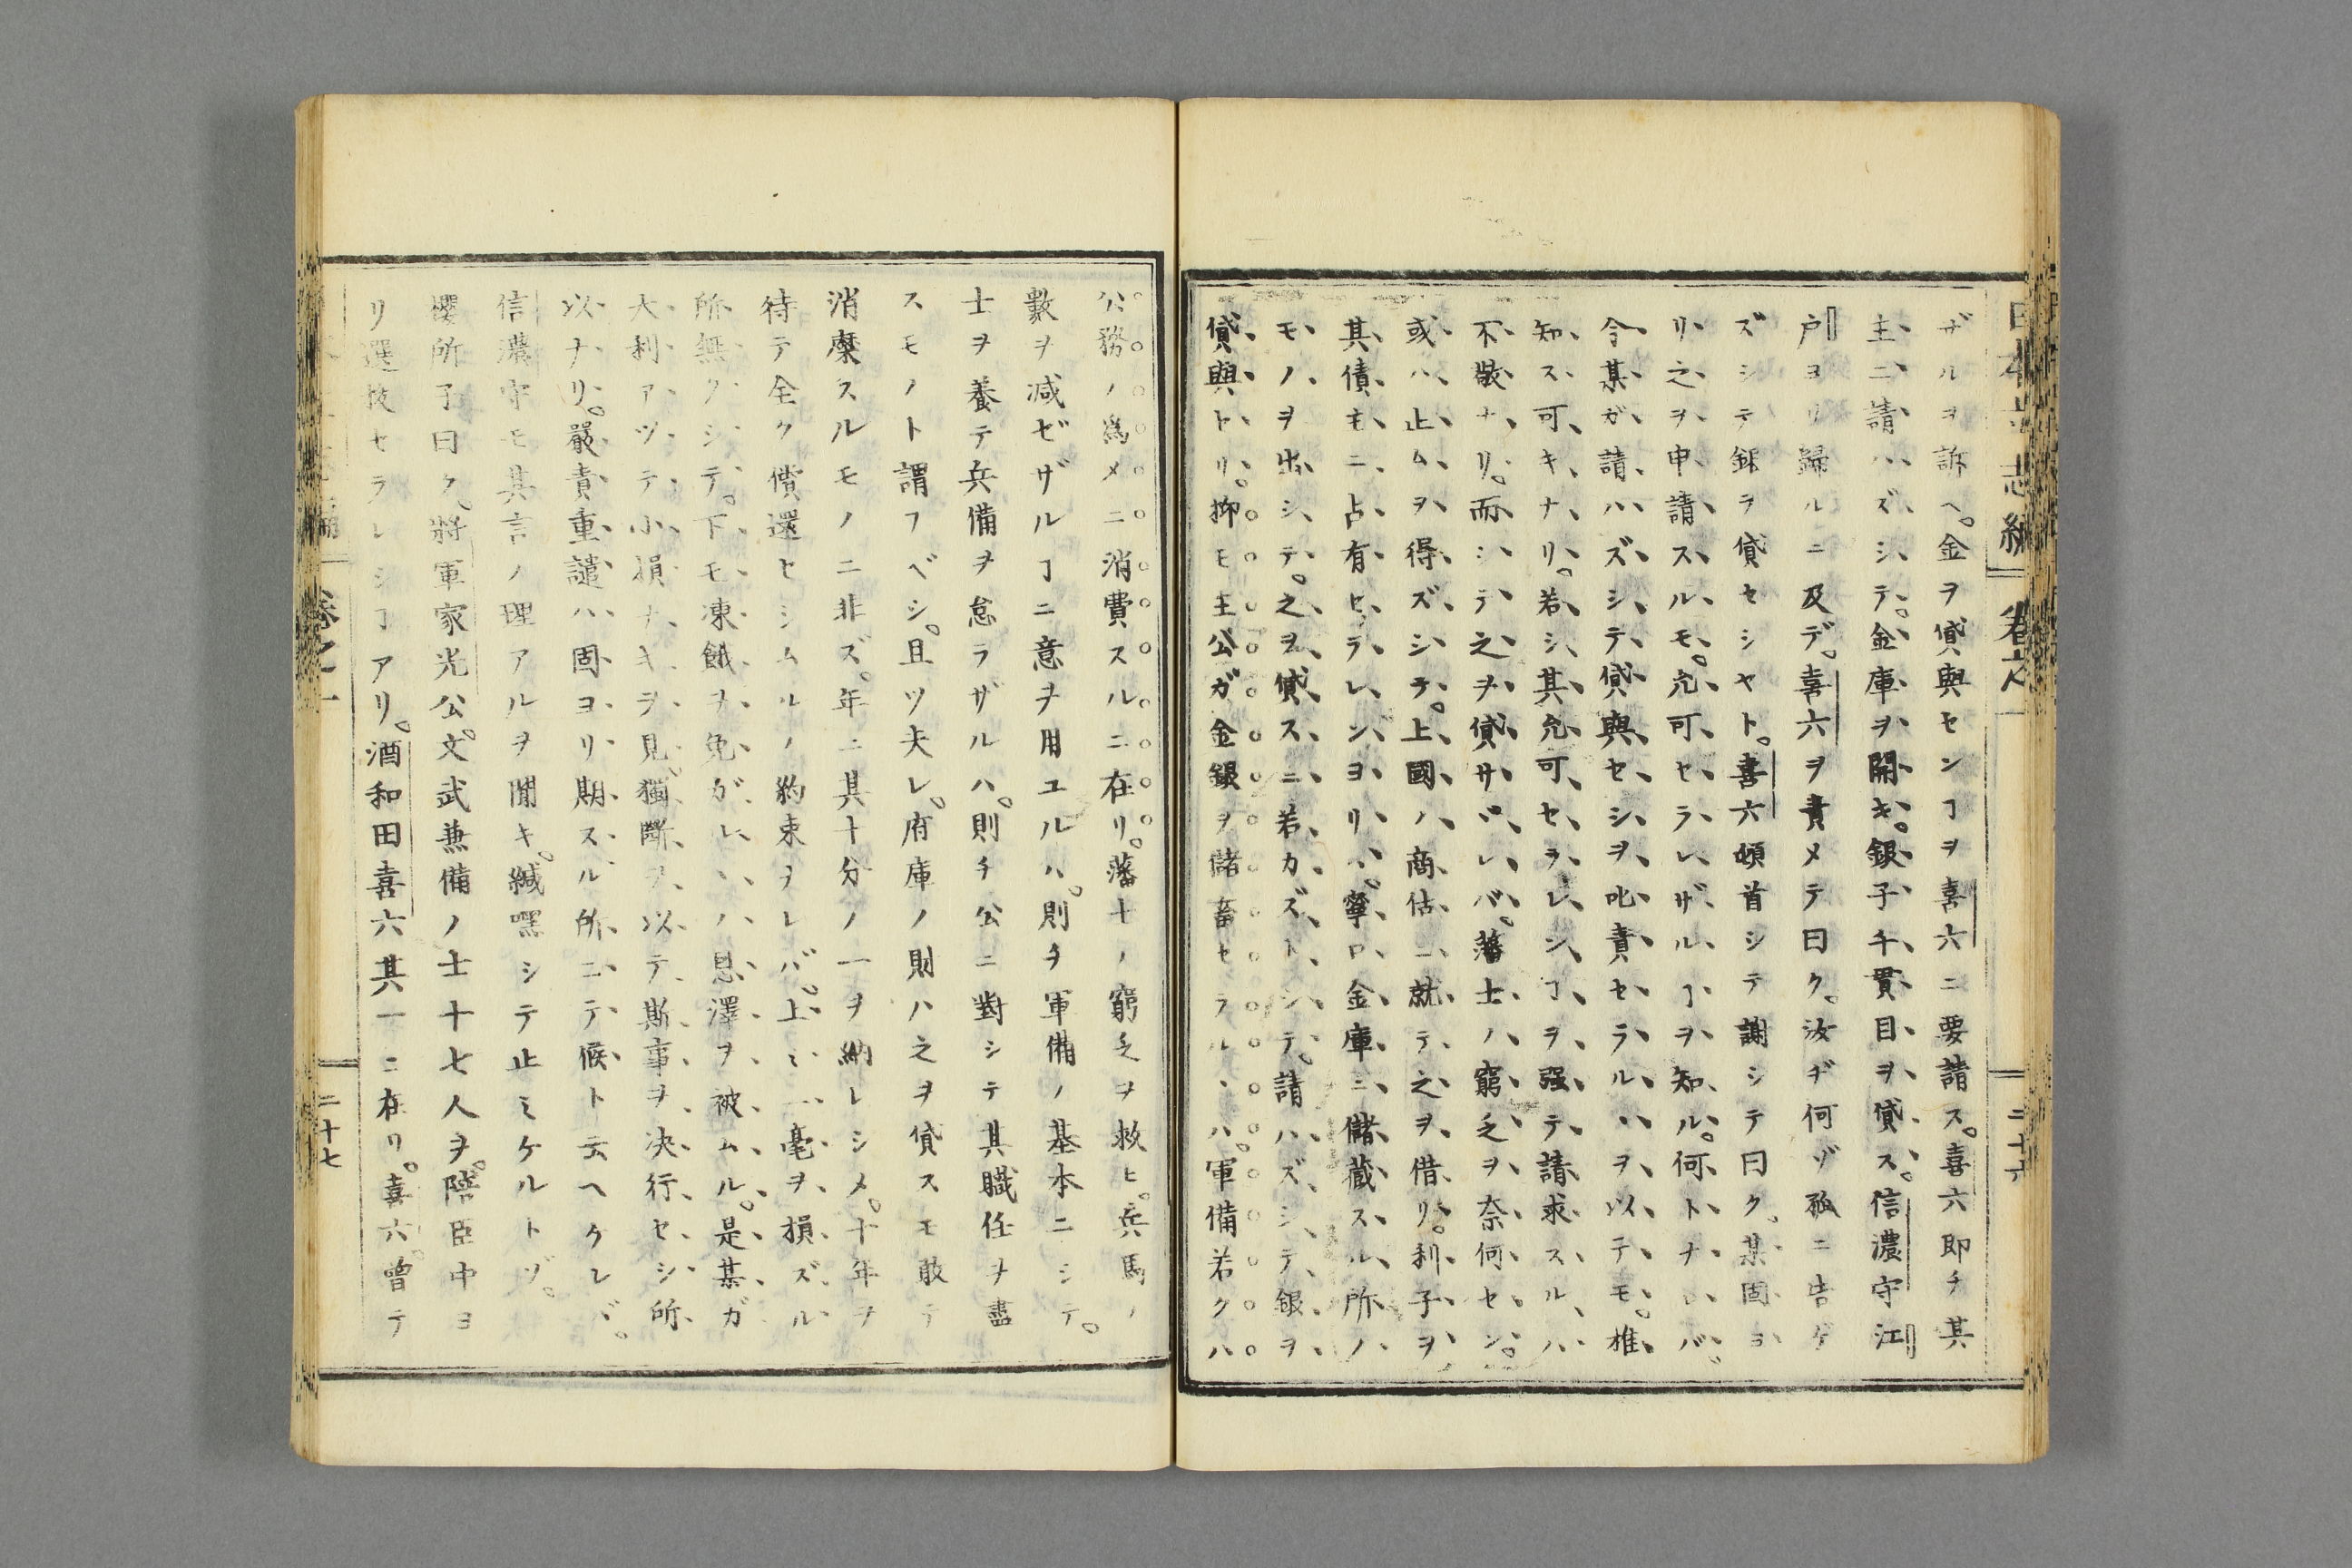 ザルヲ訴ヘ。金ヲ貸與センヿヲ喜六ニ要請ス。喜六即チ其
主ニ請ハズシテ。金庫ヲ開キ。銀子千貫目ヲ貸ス。信濃守江
戸ヨリ歸ルニ及デ。喜六ヲ責メテ曰ク。汝ヂ何ゾ孤ニ告ゲ
ズシテ銀ヲ貸セシヤト。喜六頓首シテ謝シテ曰ク。某固ヨ
リ之ヲ申請スルモ。允可セラレザルヿヲ知ル。何トナレバ。
今某ガ請ハズシテ貸與セシヲ叱責セラルヽヲ以テモ。推
知ス可キナリ。若シ其允可セラレシヿヲ强テ請求スルハ
不敬ナリ。而シテ之ヲ貸サヾレバ。藩士ノ窮乏ヲ奈何セン。
或ハ止ムヲ得ズシテ。上國ノ商估ニ就テ之ヲ借リ。利子ヲ
其債主ニ占有セラレンヨリハ。寧ロ金庫ニ儲藏スル所ノ
モノヲ出シテ。之ヲ貸スニ若カズトシテ。請ハズシテ銀ヲ
貸與トリ。抑モ主公ガ金銀ヲ儲蓄セラルヽハ。軍備若クハ
日本立志編 卷之一 二十六
公務ノ爲メニ消費スルニ在リ。藩士ノ窮乏ヲ救ヒ。兵馬ノ
數ヲ減ゼザルヿニ意ヲ用ユルハ。則チ軍備ノ基本ニシテ。
士ヲ養テ兵備ヲ怠ラザルハ。則チ公ニ對シテ其職任ヲ盡
スモノト謂フベシ。且ツ夫レ。府庫ノ財ハ之ヲ貸スモ敢テ
消糜スルモノニ非ズ。年ニ其十分ノ一ヲ納レシメ。十年ヲ
待テ全ク償還セシムルノ約束ヲレバ。上ミ一毫ヲ損ズル
所無クシテ。下モ凍餓ヲ免ガレヽハ恩澤ヲ被ムル。是某ガ
大利アツテ小損ナキヲ見。獨斷ヲ以テ斯事ヲ决行セシ所
以ナリ。嚴責重譴ハ固ヨリ期スル所ニテ候ト云ヘケレバ。
信濃守モ其言ノ理アルヲ聞キ。緘嘿シテ止ミケルトゾ。
櫻所子曰ク。將軍家光公。文武兼備ノ士十七人ヲ。陪臣中ヨ
リ選拔セラレシヿアリ。酒和田喜六其一ニ在リ。喜六。曾テ
卷之一 二十七